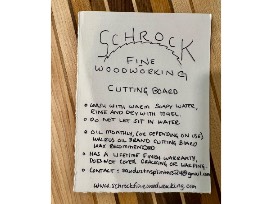 SCHROCK
FINE
WOODWORKING
CUTTING BOARD
• WASH WITH WARM SOAPY WATER,
RINSE AND DRY WITH TOWEL.
• DO NOT LET SIT IN WATER.
• OIL MONTHLY, (OR DEPENDING ON USE)
WALRUS OIL BRAND CUTTING BOARD
WAX RECOMMENDED
• HAS A LIFETIME FINISH WARRANTY,
DOES NOT COVER CRACKING OR WARPING.
• CONTACT:
www.schrockfinewoodworking.com